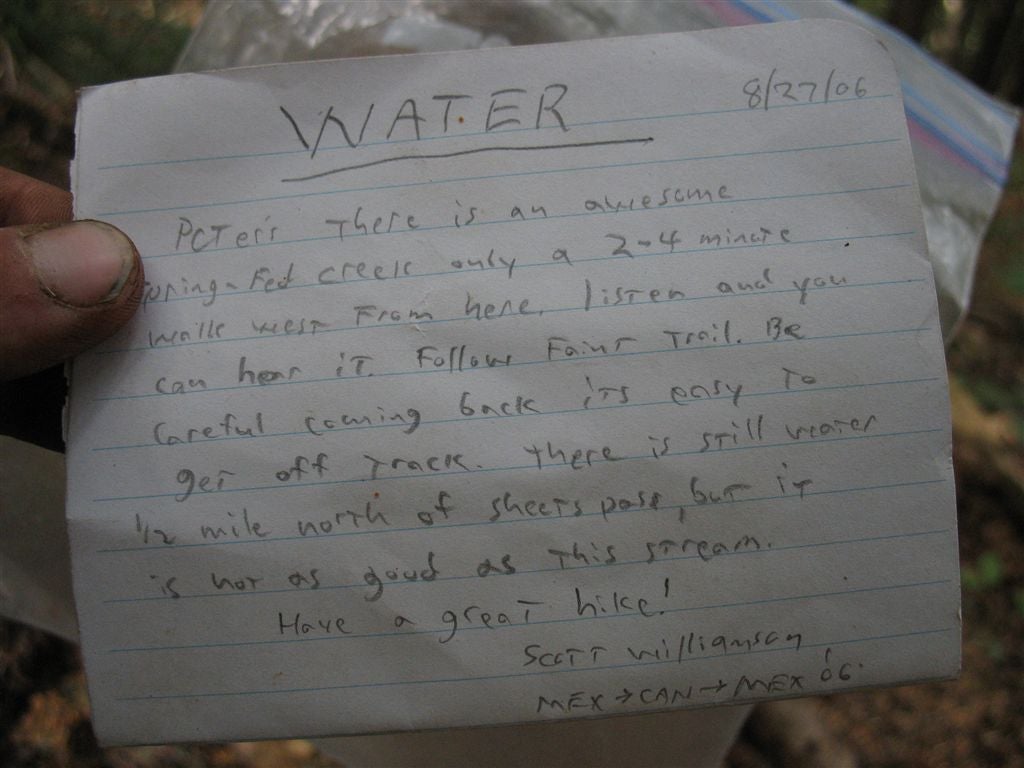 WATER
8/27/06
PCTer's There is an awesome
spring-fed creek only a 2-4 minute
walk west From here. listen and you
can hear it. Follow Faint Trail. Be
Careful coming back its easy to
get off track. There is still water
1/2 mile north of sheets pass, but it
is not as good as This stream.
Have a great hike!
Scott Williamson
MEX→CAN→MEX '06